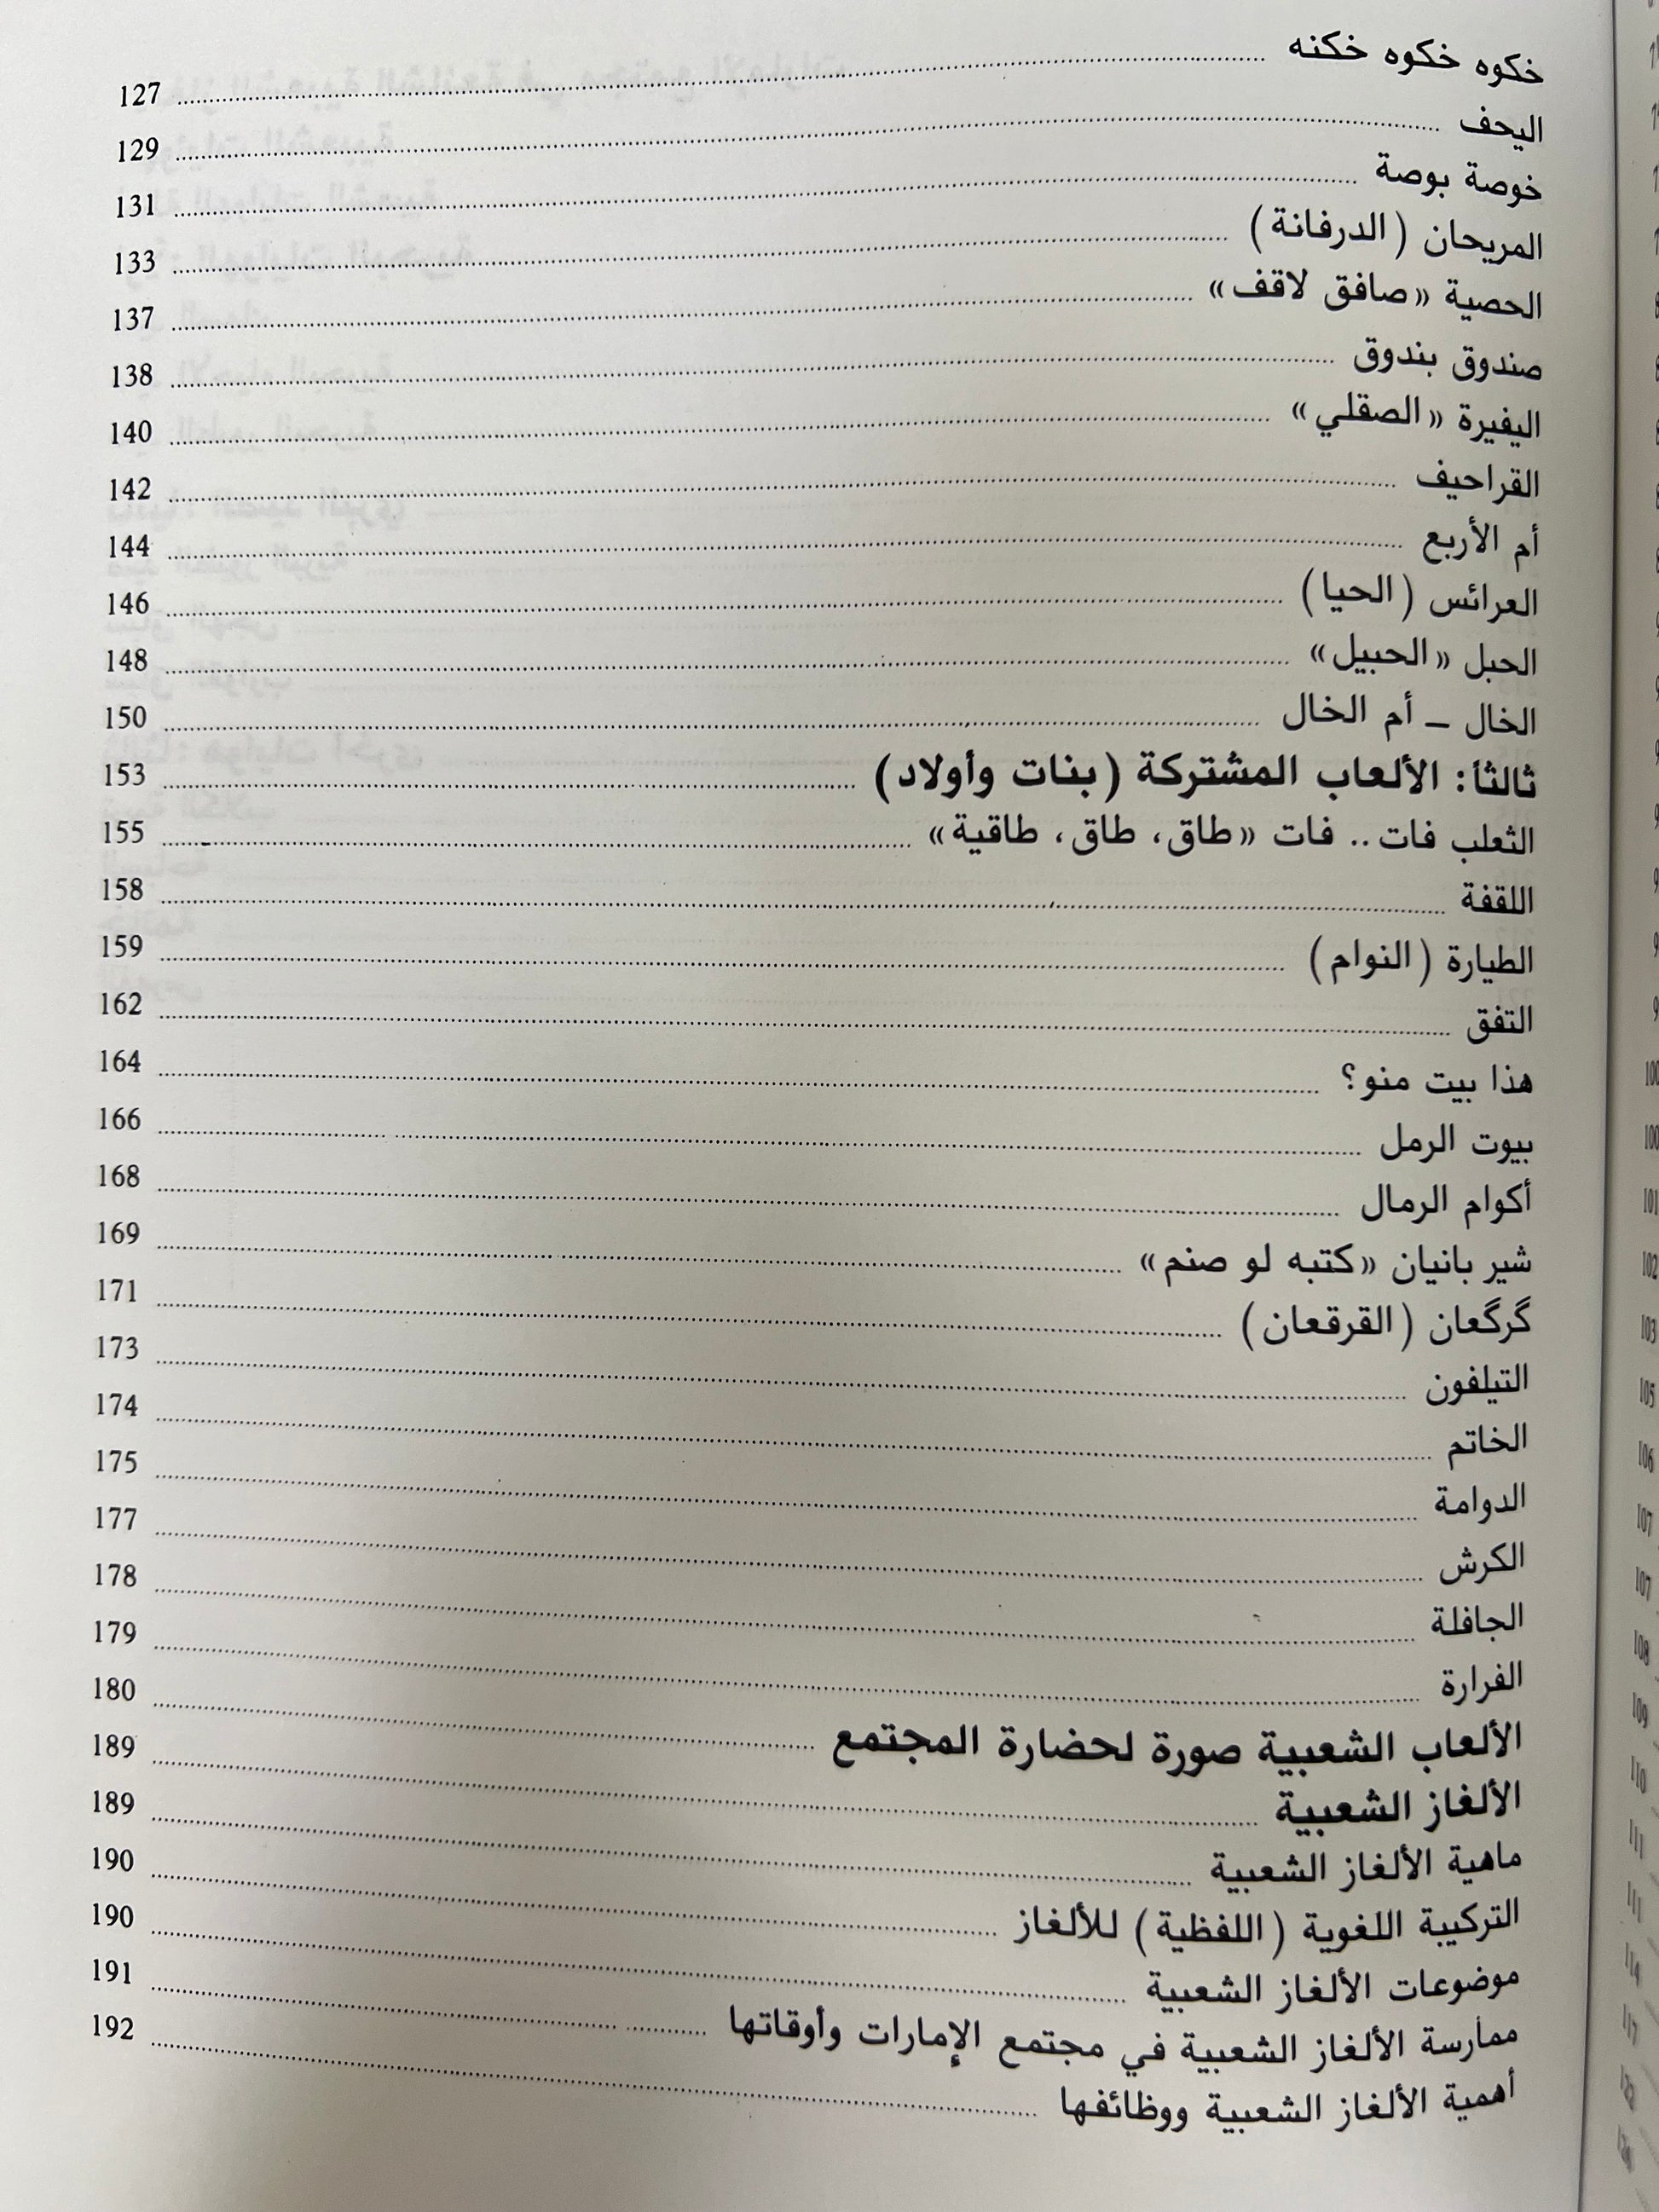 خكوه خكوه خكنه 127
اليحف 129
خوصة بوصة 131
المريحان (الدرفانة) 133
الحصية «صافق لاقف» 137
صندوق بندوق 138
اليفيرة «الصقلي» 140
القراحيف 142
أم الأربع 144
العرائس (الحيا) 146
الحبل «الحبيل» 148
الخال – أم الخال 150
ثالثاً: الألعاب المشتركة (بنات وأولاد) 153
الثعلب فات.. فات «طاق، طاق، طاقية» 155
اللقفة 158
الطيارة (النوام) 159
التفق 162
هذا بيت منو؟ 164
بيوت الرمل 166
أكوام الرمال 168
شير بانيان «كتبه لو صنم» 169
گرگعان (القرقعان) 171
التيلفون 173
الخاتم 174
الدوامة 175
الكرش 177
الجافلة 178
الفرارة 179
الألعاب الشعبية صورة لحضارة المجتمع 180
الألغاز الشعبية 189
ماهية الألغاز الشعبية 189
التركيبة اللغوية (اللفظية) للألغاز 190
موضوعات الألغاز الشعبية 190
ممارسة الألغاز الشعبية في مجتمع الإمارات وأوقاتها 191
أهمية الألغاز الشعبية ووظائفها 192